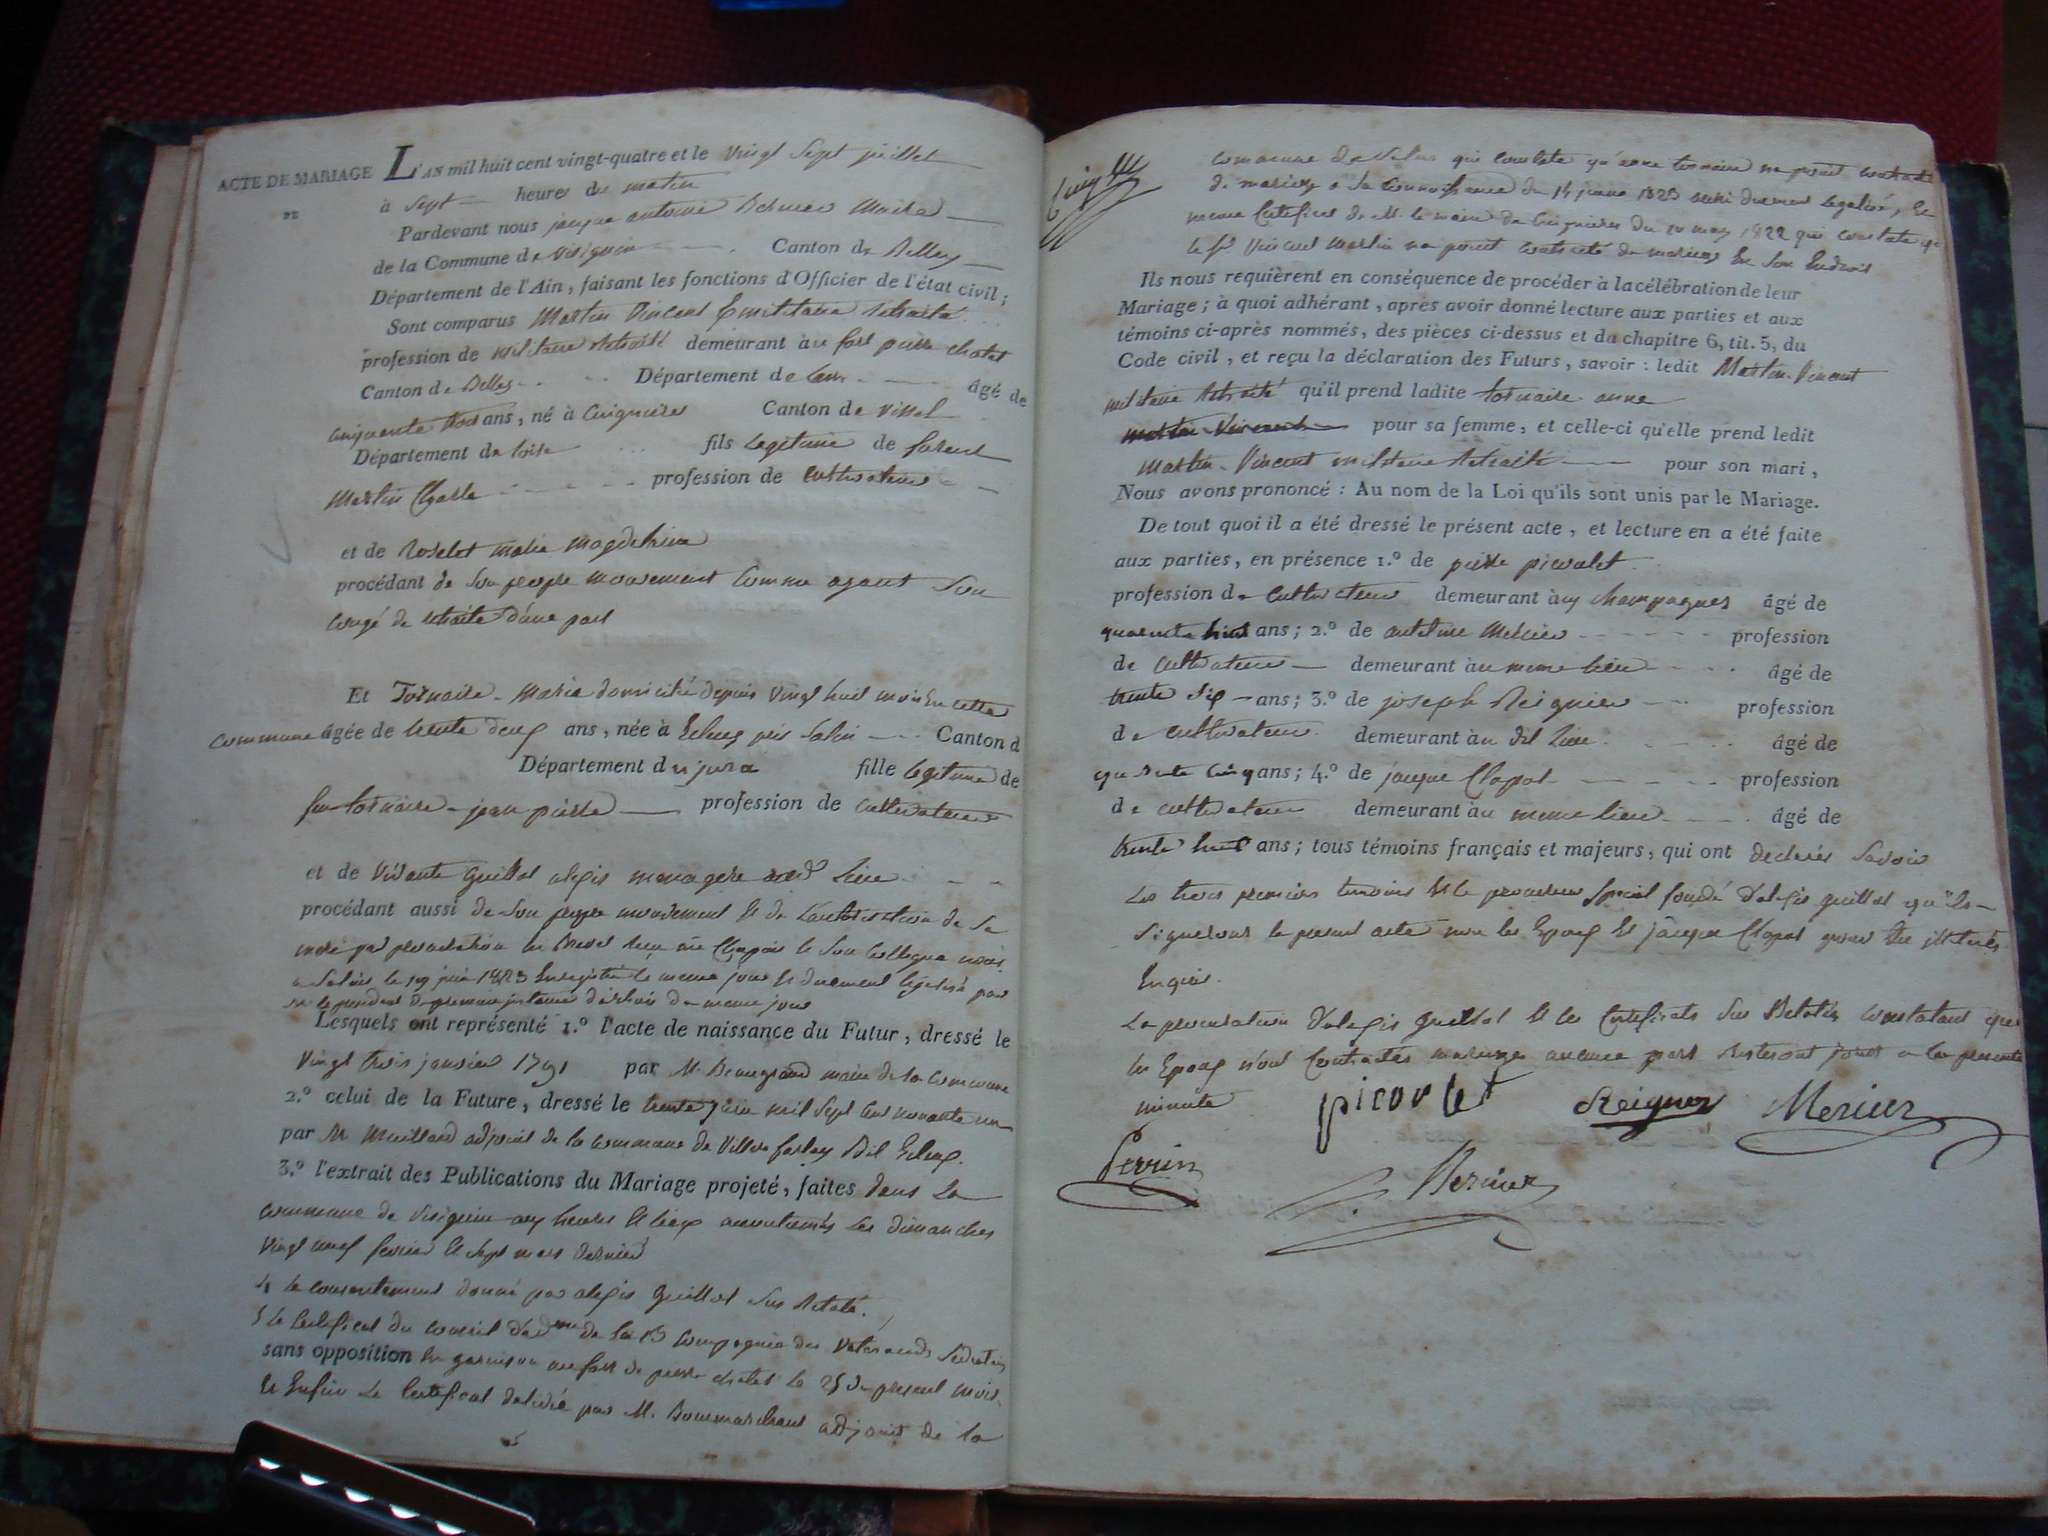 ACTE DE MARIAGE L'AN mil huit cent vingt-quatre et le vingt sept juillet
DE
à sept heures du matin
Pardevant nous jacque antoine Maire
de la Commune de Virignin Canton de Belley
Département de l'Ain, faisant les fonctions d'Officier de l'état civil ;
Sont comparus Martin Vincent militaire retraité
profession de militaire retraité demeurant au fort pierre chatel
Canton de Belley Département de l'ain âgé de
cinquante trois ans, né à Cuignieres Canton de
Département de l'oise fils legitime de
Martin Charle profession de cultivateur
et de marie magdeleine
procédant de son propre mouvement comme ayant son
congé de retraite d'une part
Et Tornaire Marie domicilié depuis vingt huit mois en cette
commune âgée de trente deux ans, née à près Salin Canton d
Département du jura fille legitime de
feu tornaire jean pierre profession de cultivateur
et de vivante guillot alexis menagere lieu
procédant aussi de son propre mouvement et de l'autorisation de sa
mere par procuration en brevet son collegue
a Salins le 19 juin 1823 Enregistré le meme jour et duement légalisé par
le president de premiere instance d'arbois du meme jour
Lesquels ont représenté 1.º l'acte de naissance du Futur, dressé le
vingt trois janvier 1791 par M. Beaugrand maire de la commune
2.º celui de la Future, dressé le trente mil sept cent nonante un
par M. Maillard adjoint de la commune de Villers farlay
3.º l'extrait des Publications du Mariage projeté, faites dans la
commune de Virignin aux heures et lieux accoutumés les dimanches
vingt neuf fevrier et sept mars dernier
4 le consentement donné par alexis guillot sus relaté.
5 le certificat du conseil d'adon de la 13 compagnie des veterands sedentaires
sans opposition en garnison au fort de pierre chatel le 25 du present mois
et enfin le certificat delivré par M. Bonmarchant adjoint de la
commune de Salins qui constate qu'anne tornaire na point contracté
de mariage a sa connaissance du 14 1823 duement legalisé, et
meme certificat de M. le maire de Cuignieres du 10 may 1822 qui constate que
le sr Vincent Martin na point contracté de mariage en son endroit
Ils nous requièrent en conséquence de procéder à la célébration de leur
Mariage ; à quoi adhérant, après avoir donné lecture aux parties et aux
témoins ci-après nommés, des pièces ci-dessus et du chapitre 6, tit. 5, du
Code civil, et reçu la déclaration des Futurs, savoir : ledit Martin Vincent
militaire retraité qu'il prend ladite tornaire anne
martin Vincent pour sa femme, et celle-ci qu'elle prend ledit
Martin Vincent militaire retraité pour son mari,
Nous avons prononcé : Au nom de la Loi qu'ils sont unis par le Mariage.
De tout quoi il a été dressé le présent acte, et lecture en a été faite
aux parties, en présence 1.º de pierre picoulet
profession de cultivateur demeurant aux champagnes âgé de
quarante huit ans ; 2.º de antelme Mercier profession
de cultivateur demeurant au meme lieu âgé de
trente six ans ; 3.º de joseph Reignier profession
de cultivateur demeurant au dit lieu âgé de
quarante cinq ans ; 4.º de jacque Clapot profession
de cultivateur demeurant au meme lieu âgé de
trente huit ans ; tous témoins français et majeurs, qui ont declarés savoir
les trois premiers temoins et le procureur special fondé d'alexis guillot qu'ils
signeront le present acte non les Epoux et jacque Clapot pour etre illiterés
enquis.
La procuration d'alexis guillot et les certificats sus relatés constatant que
les Epoux n'ont contractés mariage aucune part resteront joints a la presente
minute picoulet Reignier Mercier
Perrin Mercier